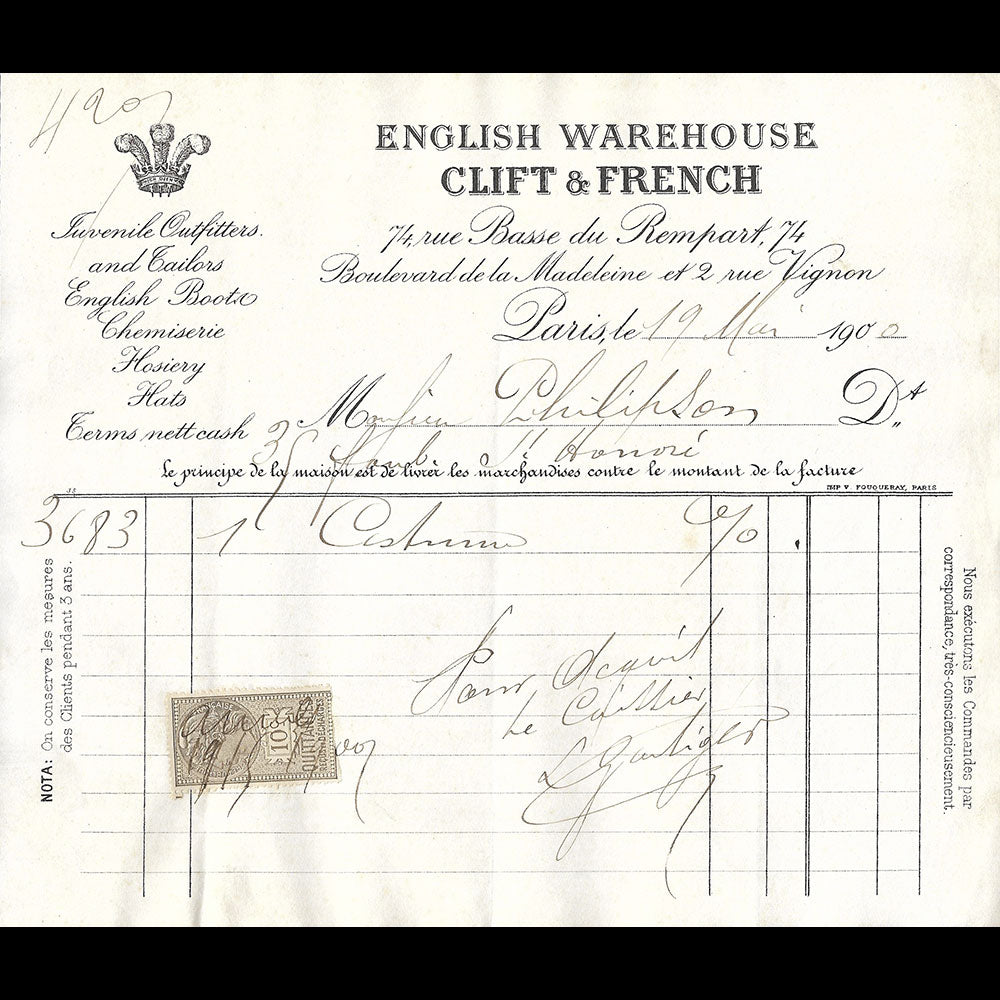 420
ENGLISH WAREHOUSE
CLIFT & FRENCH
74, rue Basse du Rempart, 74
Boulevard de la Madeleine et 2 rue Vignon
Paris, le 19 Mai 1900
Juvenile Outfitters.
and Tailors
English Boots
Chemiserie
Hosiery
Hats
Terms nett cash
Monsieur Philipson Dt
35 Faub St Honoré
Le principe de la maison est de livrer les marchandises contre le montant de la facture
IMP V. FOUQUERAY, PARIS
3683 1 Costume
NOTA: On conserve les mesures
des Clients pendant 3 ans.
Nous exécutons les Commandes par
correspondance, très-consciencieusement.
Pour Acquit
Le Caissier
10
QUITTANCES